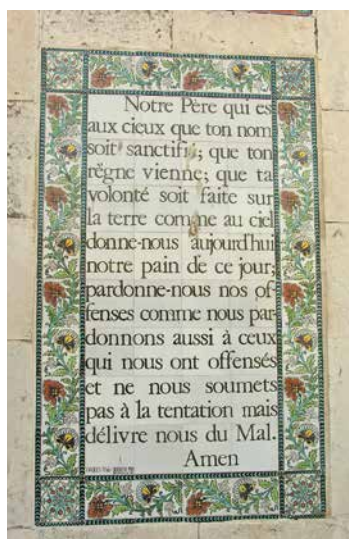 Notre Père qui es
aux cieux que ton nom
soit sanctifié; que ton
règne vienne; que ta
volonté soit faite sur
la terre comme au ciel
donne-nous aujourd'hui
notre pain de ce jour;
pardonne-nous nos of-
fenses comme nous par-
donnons aussi à ceux
qui nous ont offensés
et ne nous soumets
pas à la tentation mais
délivre nous du Mal.
Amen